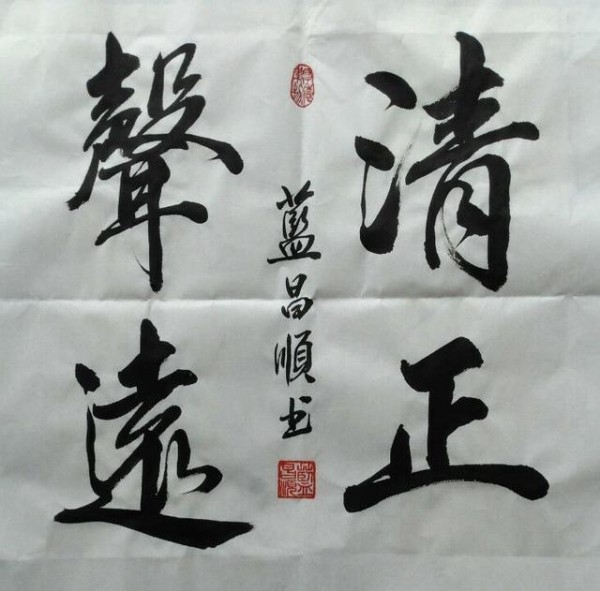 清正
聲遠
藍昌順书